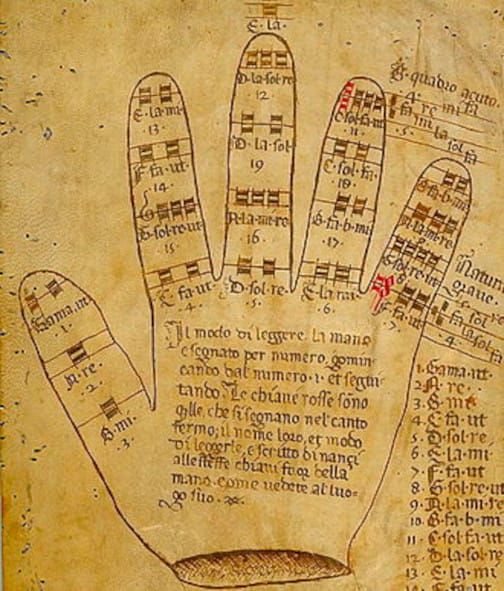 E la
D la sol re
12
E la mi
13
C sol fa ut
11
♮ quadro acuto
4 re mi fa
fa mi la sol fa
5
F fa ut
14
D la sol
19
C sol fa
18
B fa b mi
G sol re ut
15
A la mi re
16
B fa b mi
17
A la mi re
G sol re ut
8
C fa ut
4
D sol re
5
E la mi
6
F fa ut
7
Natura
graue
fa sol la
4
Gama ut
1
A re
2
B mi
3
Il modo di leggere la mano
e segnato per numero, gomin
cando dal numero .1. et segui
tando. Le chiaue rosse sono
q̃lle che si segnano nel canto
fermo; il nome loro, et modo
di leggerle, e scritto dinanzi
alle steffe chiaui fuor della
mano come uedete al luo-
go suo.
1. Gama ut
2. A re
3. B mi
4. C fa ut
5. D sol re
6. E la mi
7. F fa ut
8. G sol re ut
9. A la mi re
10. B fa b mi
11. C sol fa ut
12. D la sol re
13. E la mi
14. F fa ut